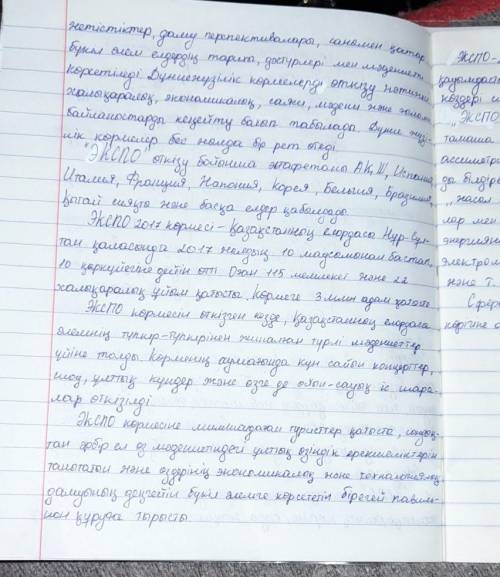 жетістіктер, даму перспективалары, сонымен қатар
бүкіл әлем елдердің тарихы, дәстүрлері мен мәдениеті
көрсетіледі. Дүниежүзілік көрмелерді өткізу нәтижесі
халықаралық, экономикалық, саяси, мәдени және ғылыми
байланыстарды кеңейту болып табылада. Дүние жүзі-
лік көрмелер бес жолда бір рет өтеді.
"ЭКСПО" өткізу бойынша эстафетаны АҚШ, Испания,
Италия, Франция, Жапония, Корея, Бельгия, Бразилия,
Қытай сияқты және басқа елдер қабылдады.
ЭКСПО 2017 көрмесі - Қазақстанның елордасы Нұр-Сұл-
тан қаласында 2017 жылдың 10 маусымынан бастап,
10 қыркүйегіне дейін өтті. Оған 115 мемлекет және 22
халықаралық ұйым қатысты. Көрмеге 3 млн адам қатысты.
ЭКСПО көрмесін өткізген кезде, Қазақстанның елордасы
әлемнің түкпір-түкпірінен жиналған түрлі мәдениеттер
үйіне толды. Көрменің аумағында күн сайын концерттер,
шоу, ұлттық күндер және өзге де ойын-сауық іс шара-
лар өткізілді.
ЭКСПО көрмесіне миллиондаған туристтер қатысты, сондық-
тан әрбір ел өз мәдениетіндегі ұлттық өзіндік ерекшеліктерін
танытатын және өздерінің экономикалық және технологиялық
дамуының деңгейін бүкіл әлемге көрсететін бірегей павиль-
ион құруға тырысты.
ЭКСПО-
қауымдаст
көздері с
"ЭКСПО
тамаша
ассиметри
да білдірe
"жасыл
лар мен
энергияны
электром
және т.
Сфера
көрігіне о